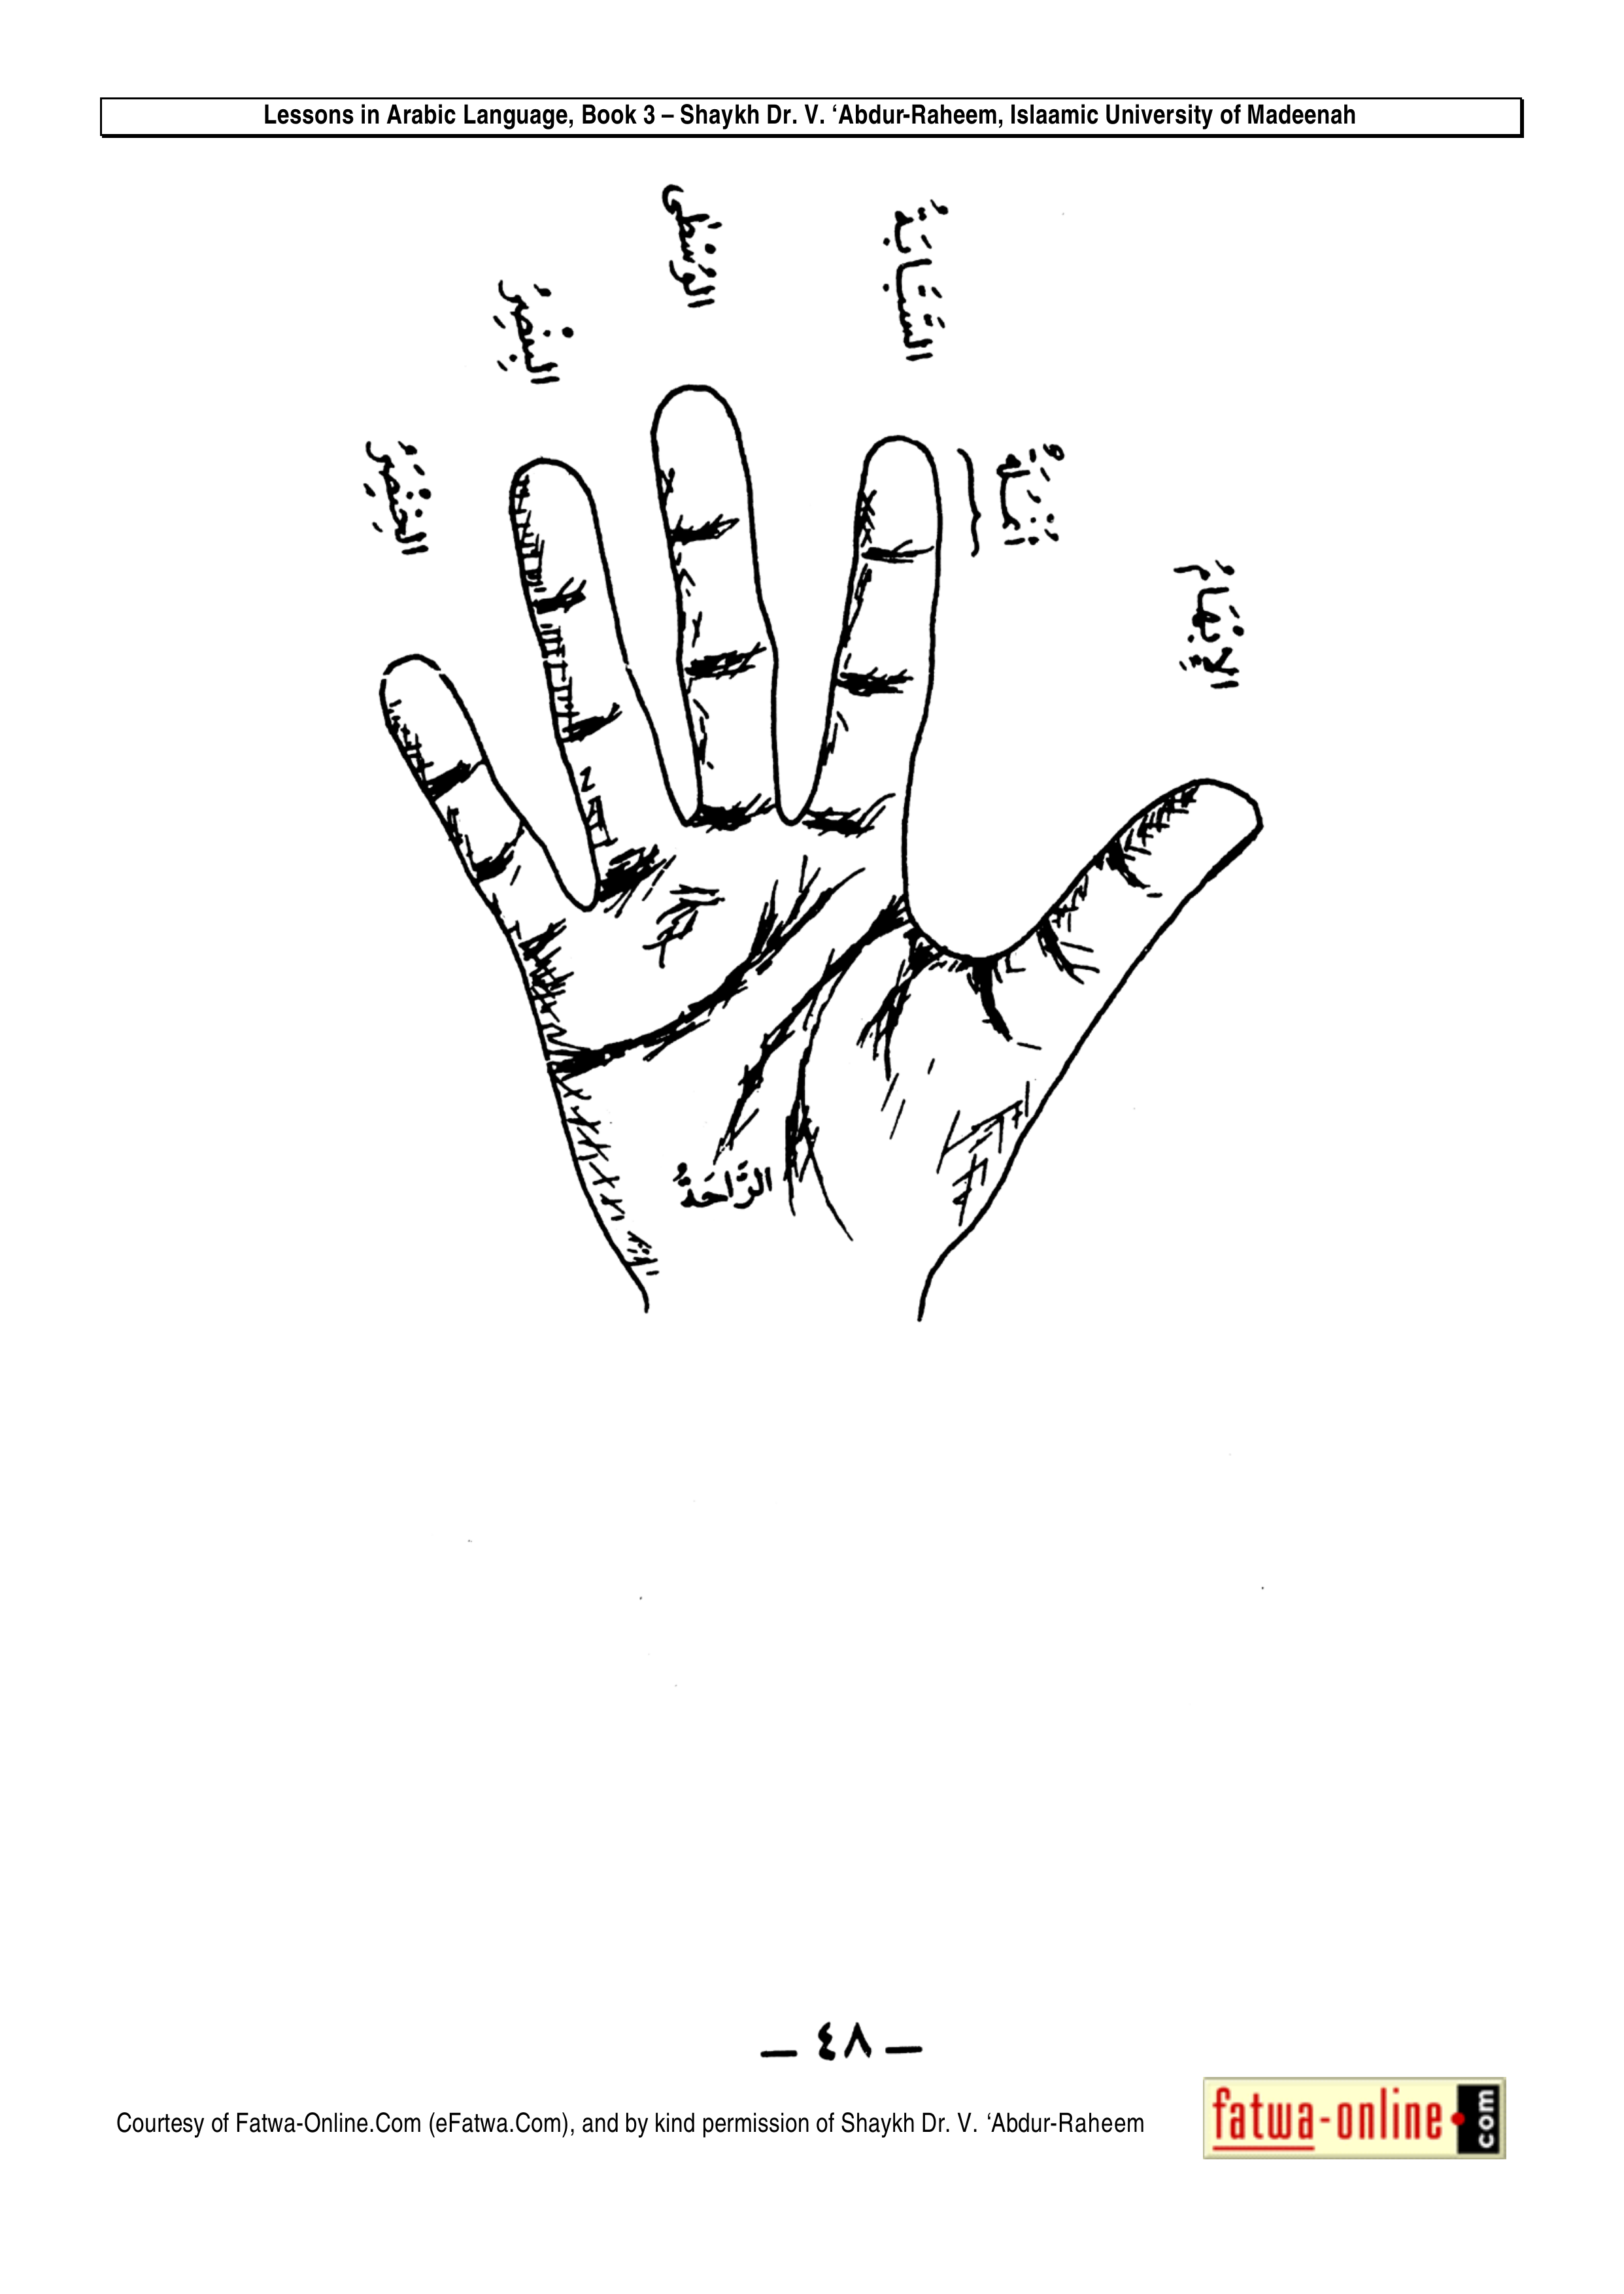 Lessons in Arabic Language, Book 3 – Shaykh Dr. V. ‘Abdur-Raheem, Islaamic University of Madeenah
الوُسْطَى
السَّبَّابَةُ
البِنْصِرُ
الخِنْصِرُ
أَنْمَلَةٌ
الإِبْهَامُ
الرَّاحَةُ
— ٤٨ —
Courtesy of Fatwa-Online.Com (eFatwa.Com), and by kind permission of Shaykh Dr. V. ‘Abdur-Raheem
fatwa-online.com